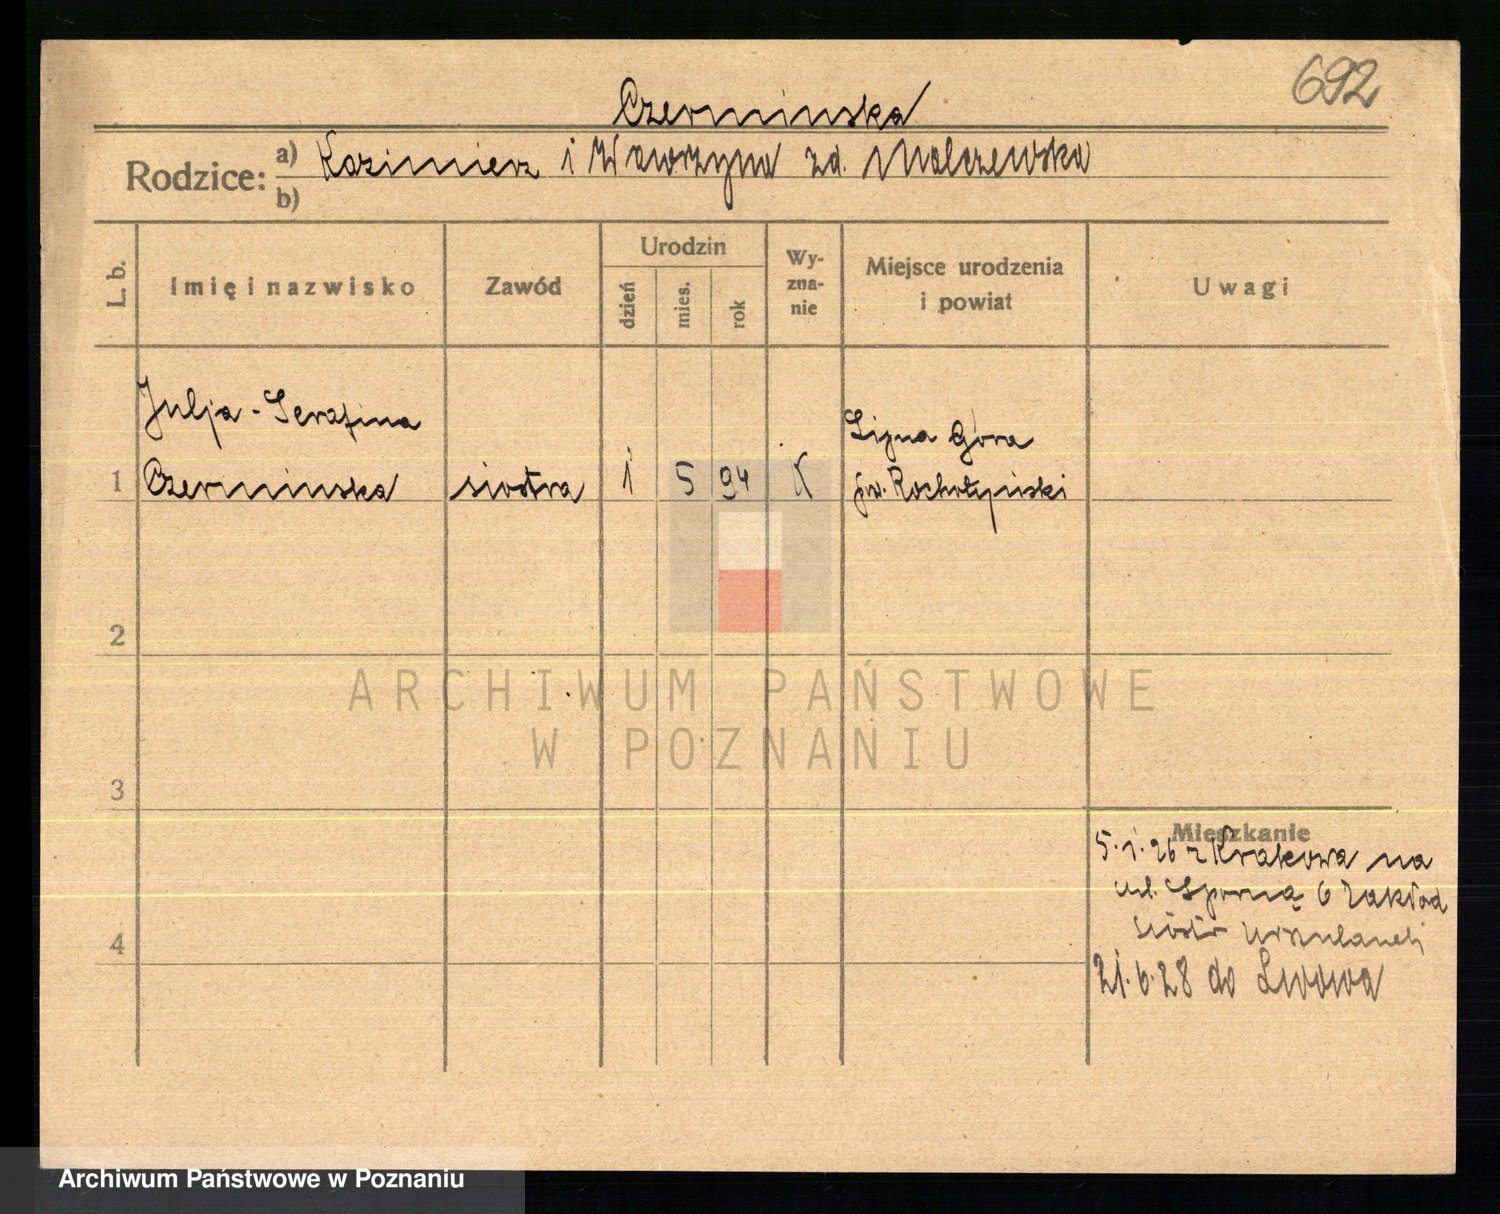 692
Czerminska
Rodzice: a) Kazimierz i Wawrzyna zd. Malczewska
b)
L. b.
Imię i nazwisko
Zawód
Urodzin
dzień
mies.
rok
Wy-
zna-
nie
Miejsce urodzenia
i powiat
Uwagi
Julja - Serafina
Lipna Góra
1 Czerminska siostra 1 5 94 K
2
ARCHIWUM PAŃSTWOWE
W POZNANIU
3
Mieszkanie
5.1.26 z Krakowa na
ul. Sporną 6 Zakład
sióstr Urszulanek
4
21.6.28 do Lwowa
Archiwum Państwowe w Poznaniu